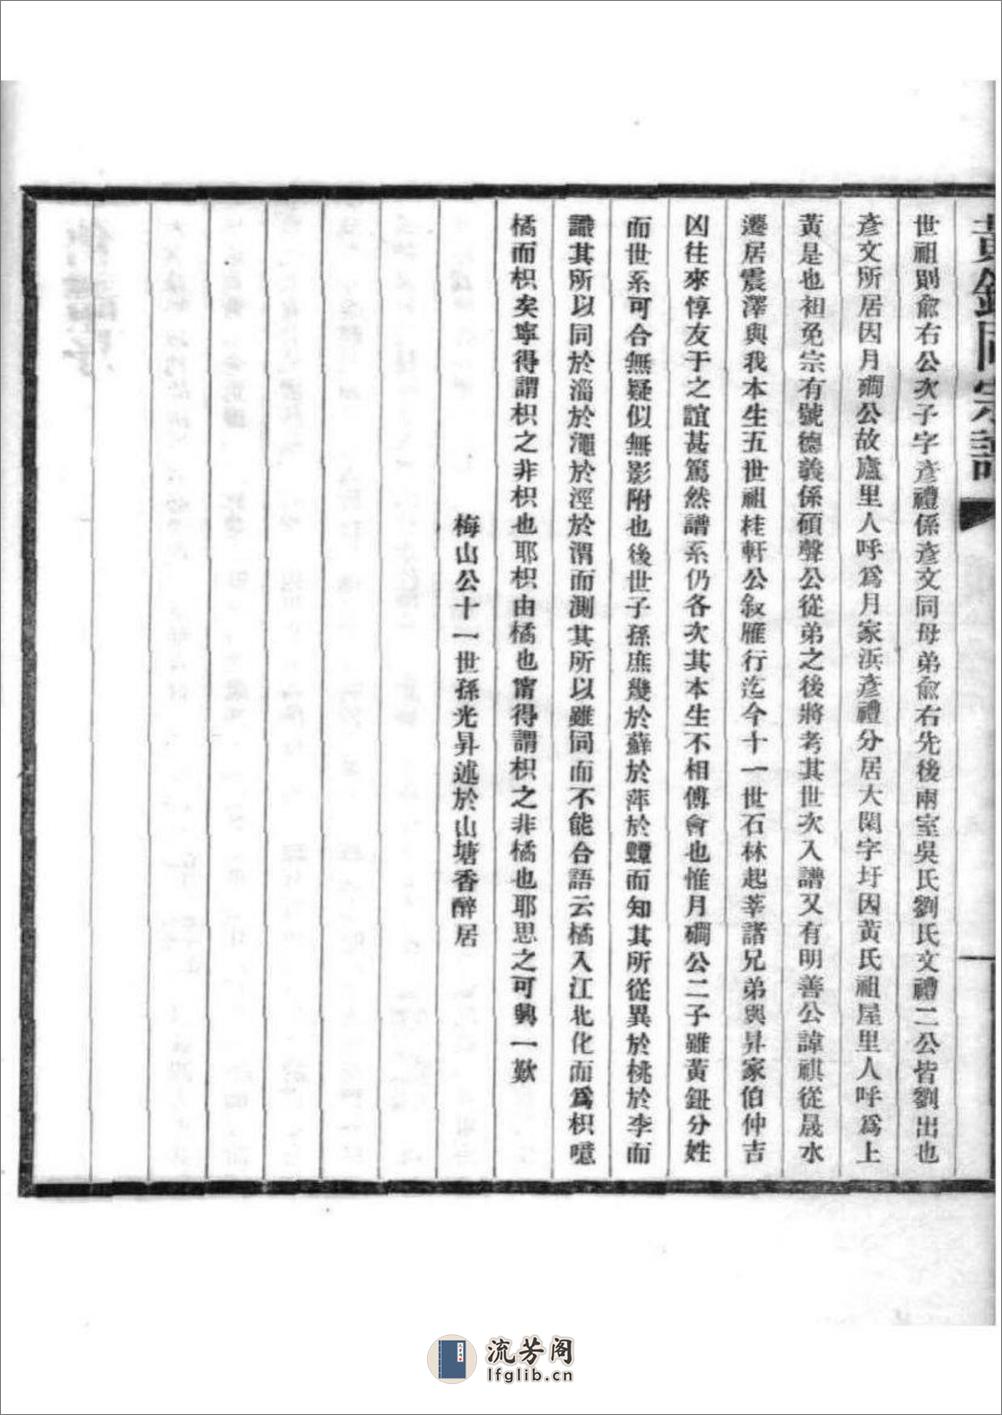 黃鈕同宗譜
世祖則愈右公次子字彥禮係彥文同母弟愈右先後兩室吳氏劉氏文禮二公皆劉出也
彥文所居因月磵公故廬里人呼爲月家浜彥禮分居大閑字圩因黃氏祖屋里人呼爲上
黃是也祖免宗有號德義係碩聲公從弟之後將考其世次入譜又有明善公諱祺從晟水
遷居震澤與我本生五世祖桂軒公叙雁行迄今十一世石林起莘諸兄弟與昇家伯仲吉
凶往來惇友于之誼甚篤然譜系仍各次其本生不相傅會也惟月磵公二子雖黃鈕分姓
而世系可合無疑似無影附也後世子孫庶幾於蘚於萍於蟫而知其所從異於桃於李而
識其所以同於淄於澠於涇於渭而測其所以雖同而不能合語云橘入江北化而爲枳噫
橘而枳矣寧得謂枳之非枳也耶枳由橘也甯得謂枳之非橘也耶思之可興一歎
梅山公十一世孫光昇述於山塘香醉居
流芳阁
lfglib.cn